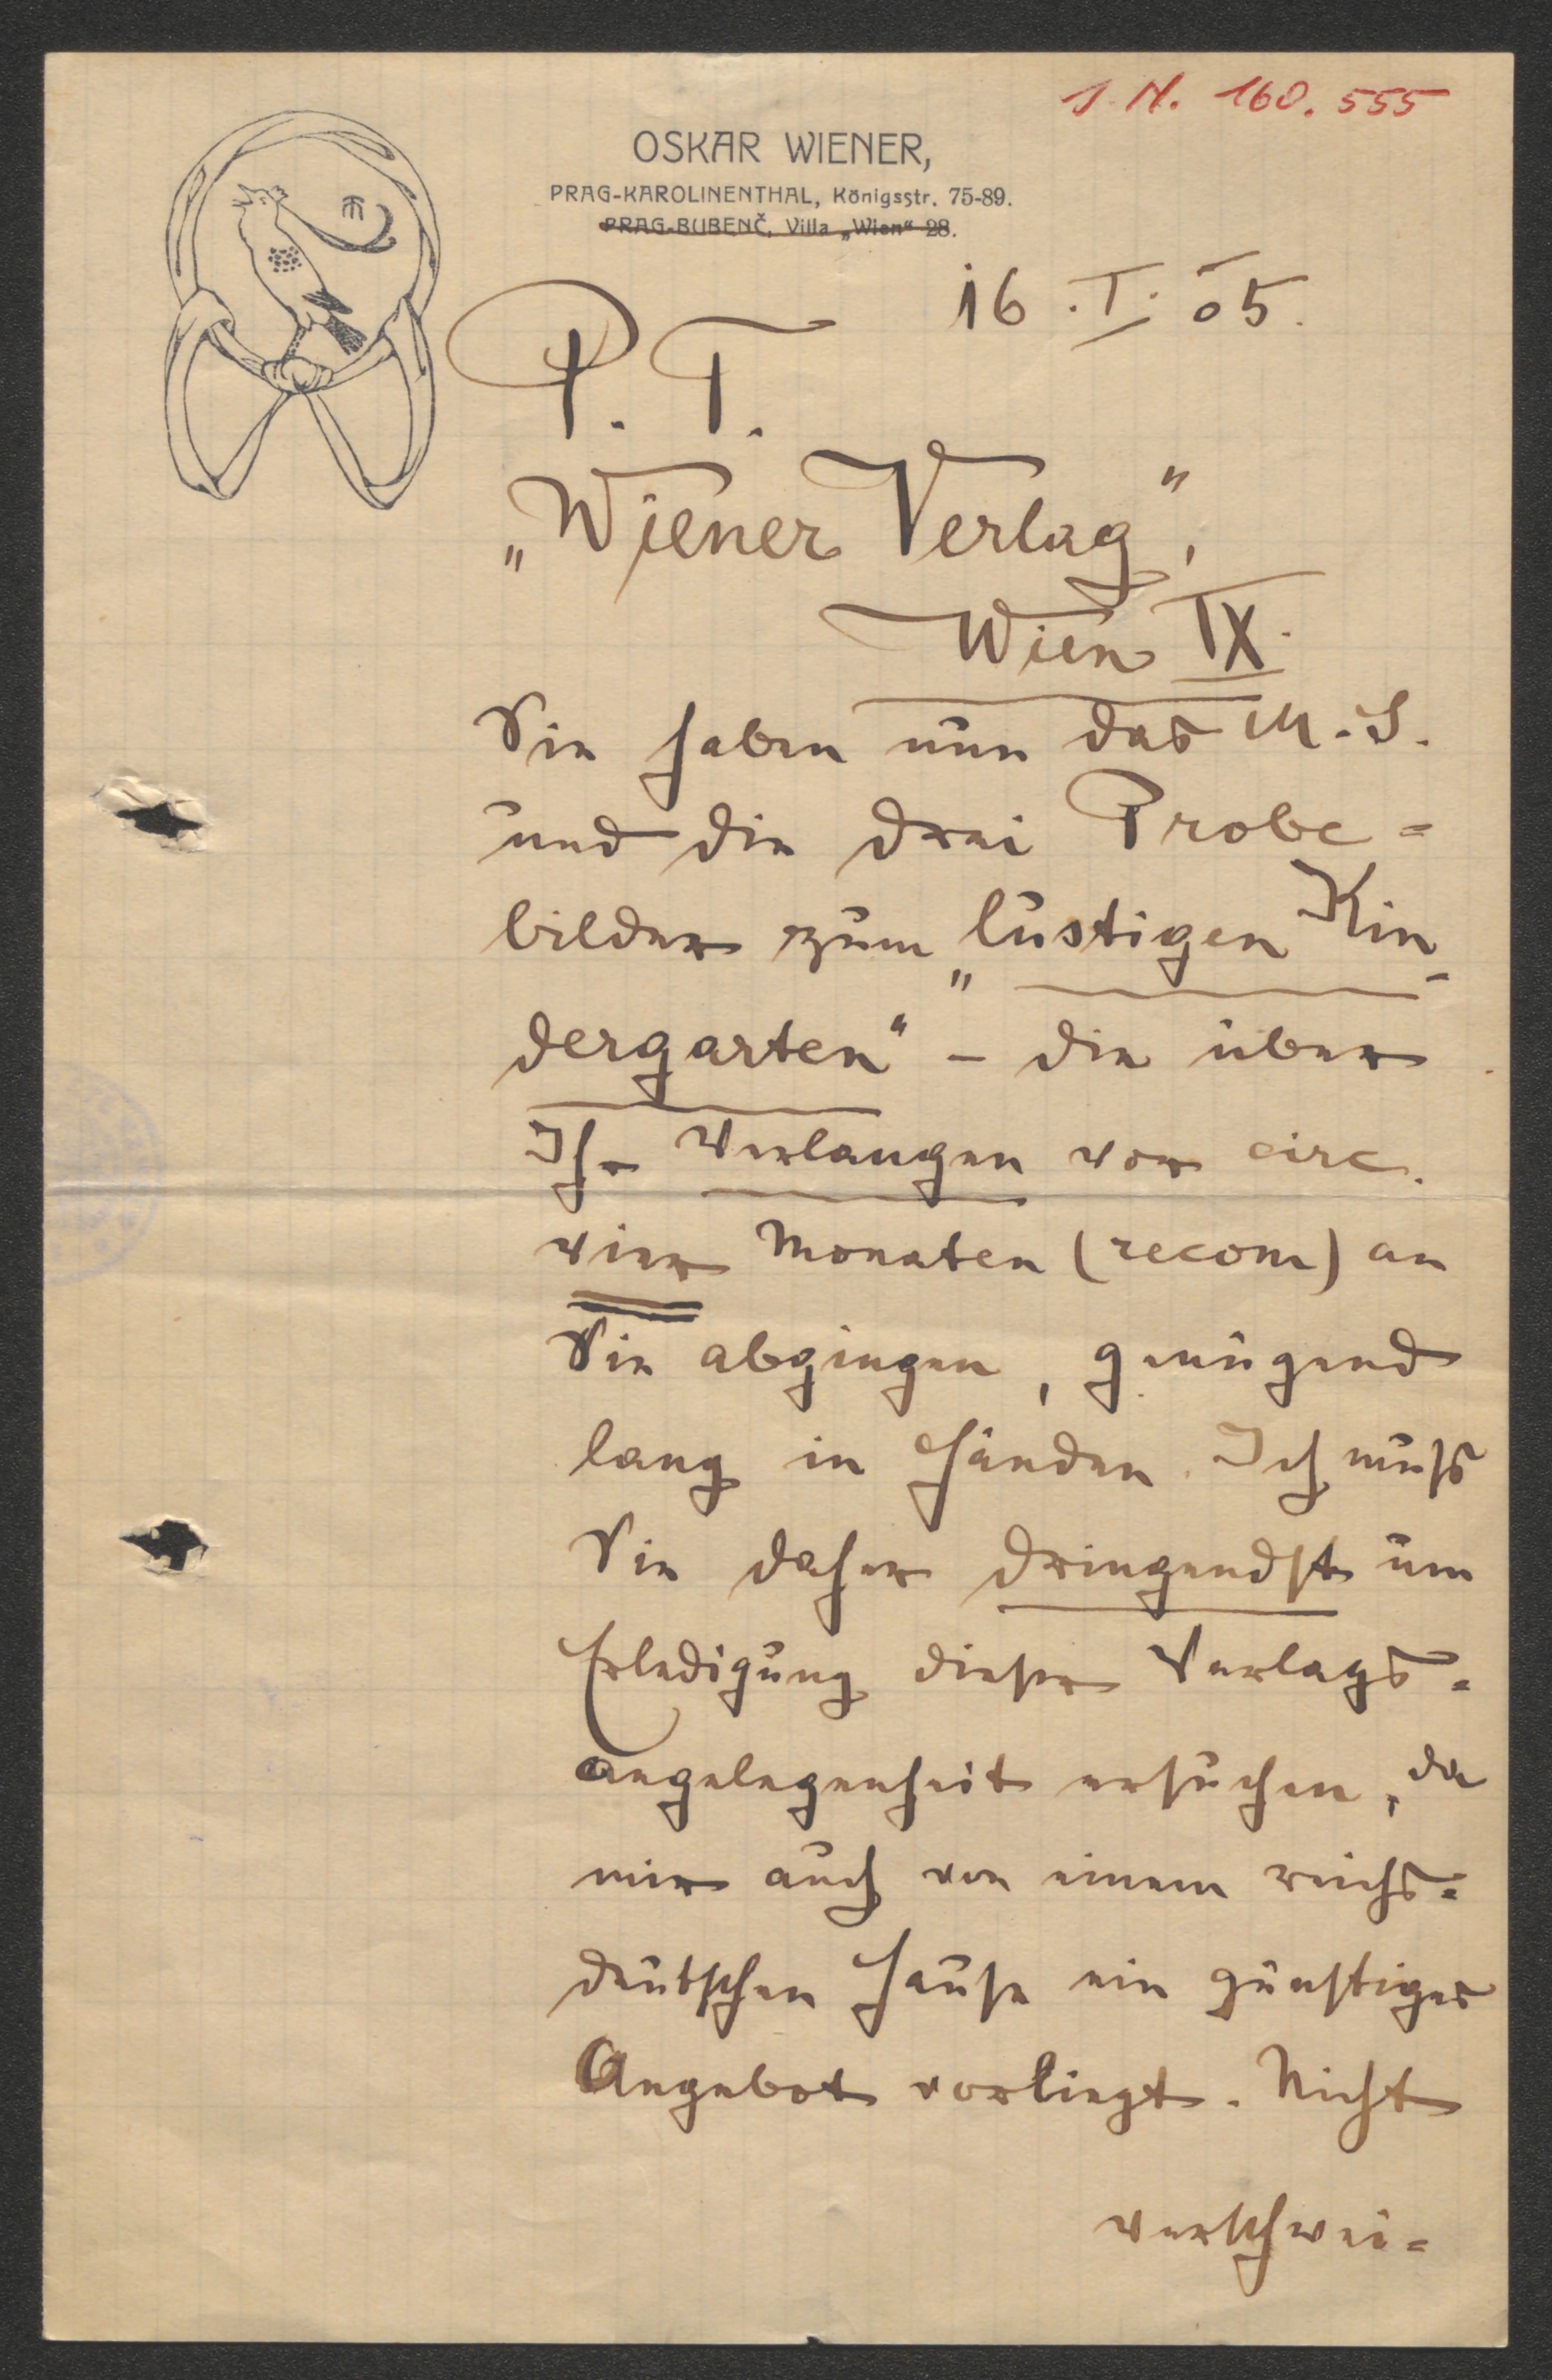 J. N. 160.555
OSKAR WIENER,
PRAG-KAROLINENTHAL, Königsstr. 75-89.
PRAG-BUBENČ, Villa „Wien“ 28.
16. I. 05.
P. T.
„Wiener Verlag“,
Wien IX.
Sie haben nun das M. S.
und die drei Probe=
bilder zum „lustigen Kin-
dergarten“ – die über
Ihr Verlangen vor circ.
vier Monaten (recom) an
Sie abgingen, genügend
lang in Händen. Ich muß
Sie daher dringendst um
Erledigung dieser Verlags=
angelegenheit ersuchen, da
mir auch von einem reichs=
deutschen Hause ein günstiges
Angebot vorliegt. Nicht
verschwei=